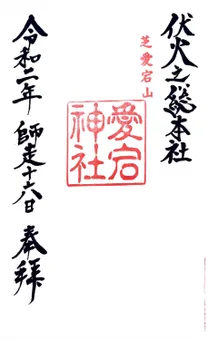 伏火之総本社
芝愛宕山
愛宕神社
令和二年 師走十六日 奉拝